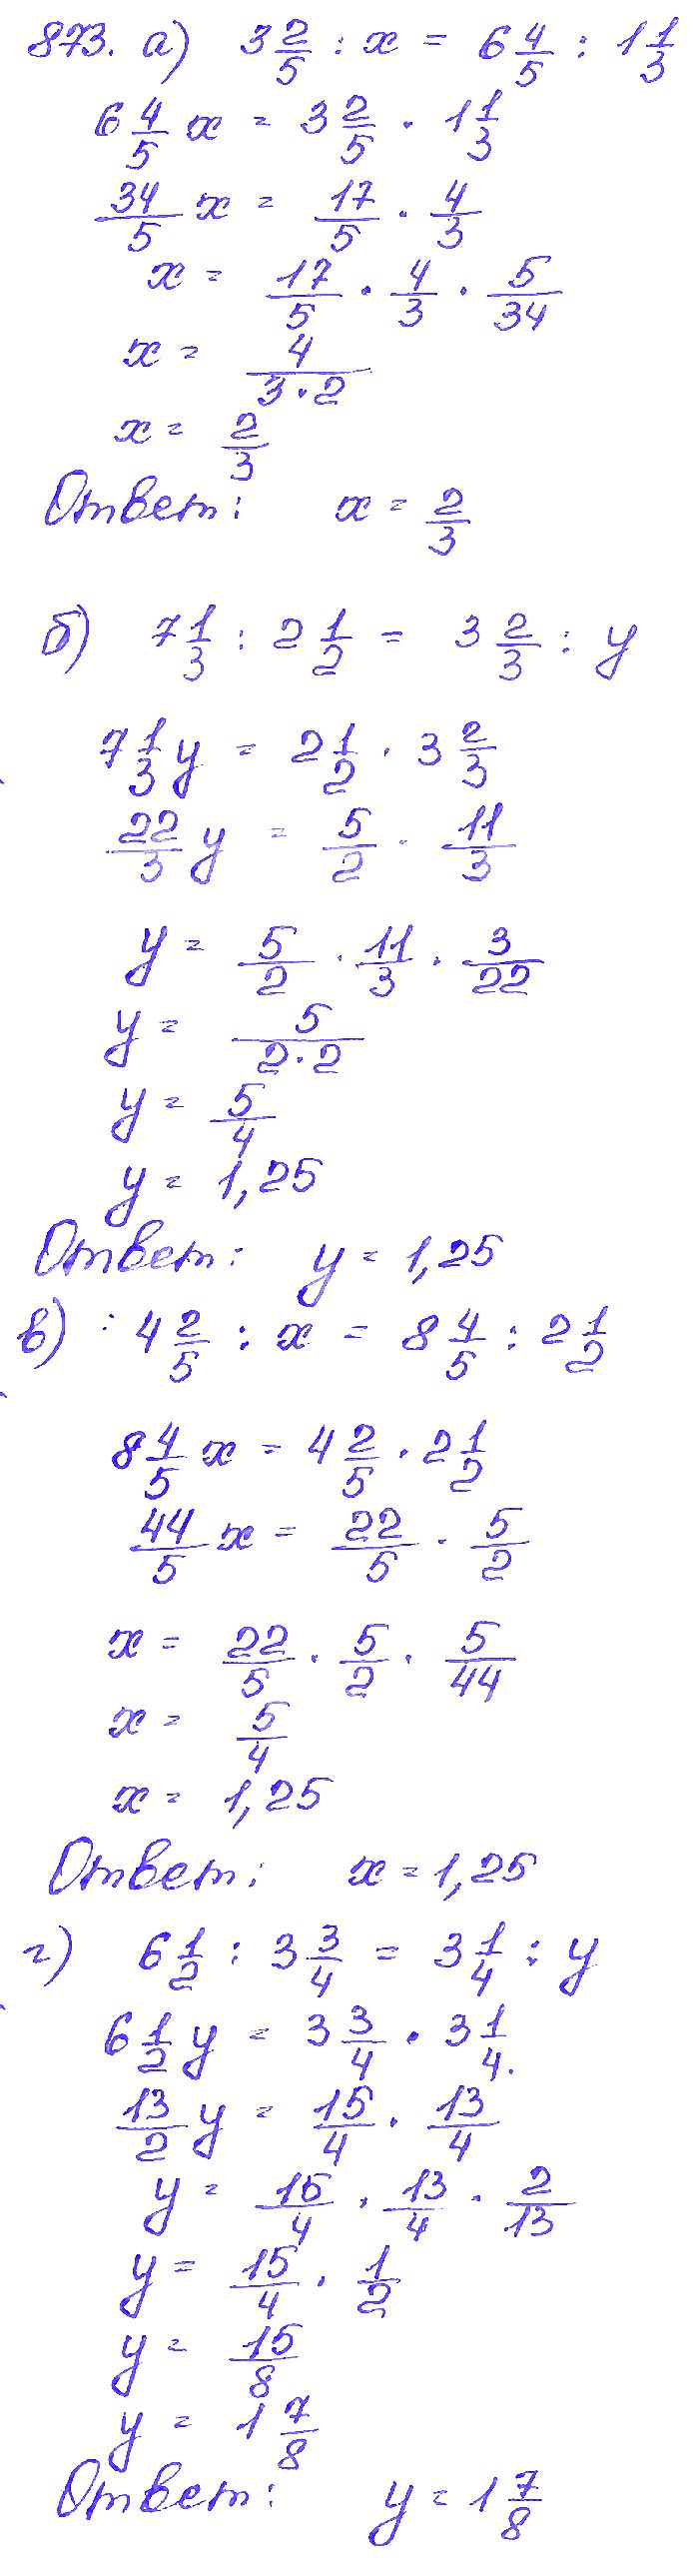 873. а) 3 2/5 : x = 6 4/5 : 1 1/3
6 4/5 x = 3 2/5 · 1 1/3
34/5 x = 17/5 · 4/3
x = 17/5 · 4/3 · 5/34
x = 4/(3·2)
x = 2/3
Ответ: x = 2/3
б) 7 1/3 : 2 1/2 = 3 2/3 : y
7 1/3 y = 2 1/2 · 3 2/3
22/3 y = 5/2 · 11/3
y = 5/2 · 11/3 · 3/22
y = 5/(2·2)
y = 5/4
y = 1,25
Ответ: y = 1,25
в) : 4 2/5 : x = 8 4/5 : 2 1/2
8 4/5 x = 4 2/5 · 2 1/2
44/5 x = 22/5 · 5/2
x = 22/5 · 5/2 · 5/44
x = 5/4
x = 1,25
Ответ: x = 1,25
г) 6 1/2 : 3 3/4 = 3 1/4 : y
6 1/2 y = 3 3/4 · 3 1/4.
13/2 y = 15/4 · 13/4
y = 15/4 · 13/4 · 2/13
y = 15/4 · 1/2
y = 15/8
y = 1 7/8
Ответ: y = 1 7/8